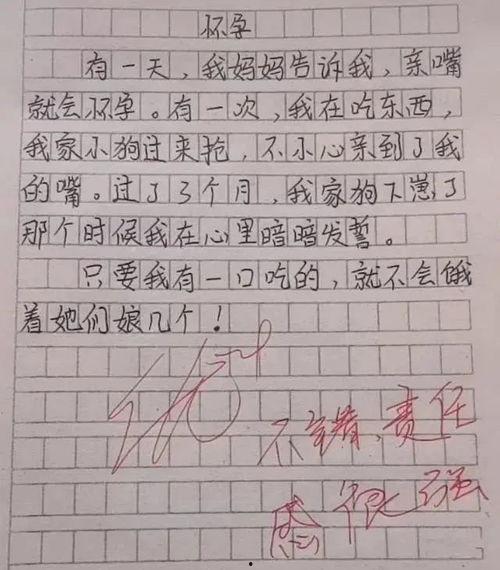 怀孕
有一天，我妈妈告诉我，亲嘴
就会怀孕。有一次，我在吃东西，
我家小狗过来抢，不小心亲到了我
的嘴。过了3个月，我家狗下崽了
那个时候我在心里暗暗发誓。
只要我有一口吃的，就不会饿
着她们娘几个！
不错、责任
感很强